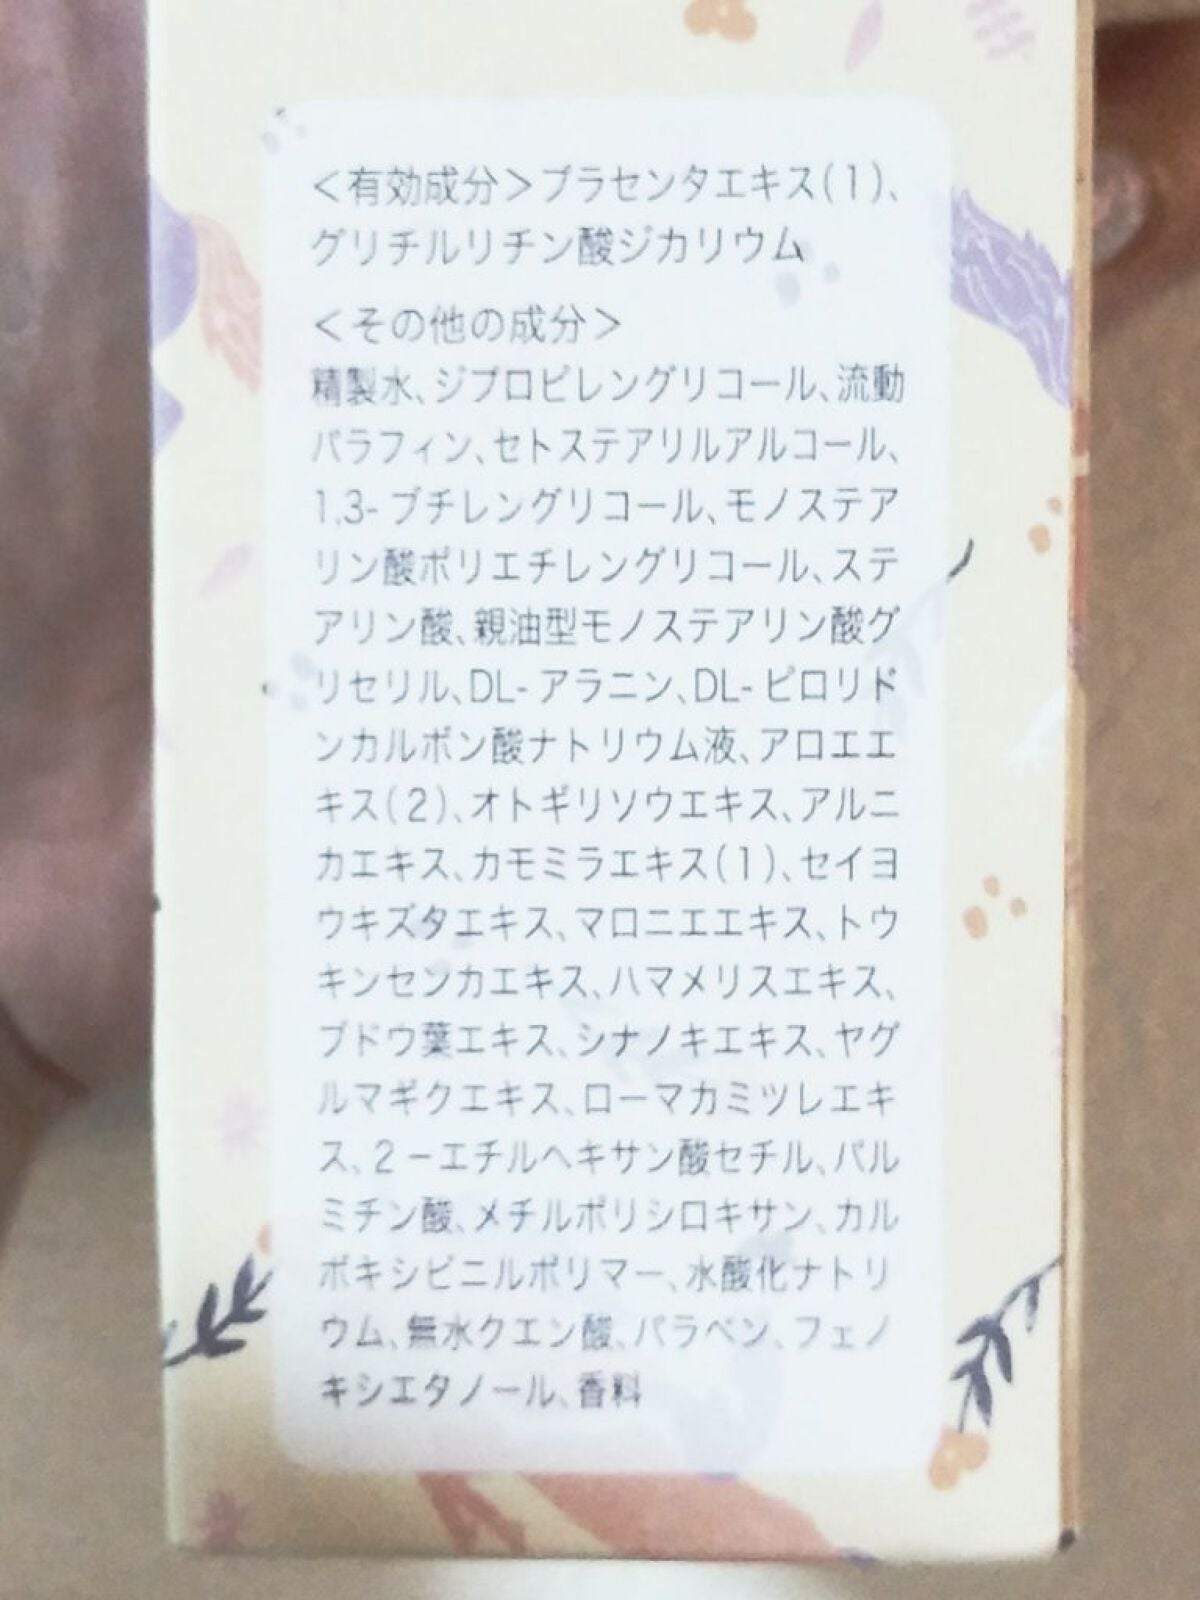 ＜有効成分＞プラセンタエキス(1)、
グリチルリチン酸ジカリウム
＜その他の成分＞
精製水、ジプロピレングリコール、流動
パラフィン、セトステアリルアルコール、
1,3-ブチレングリコール、モノステア
リン酸ポリエチレングリコール、ステ
アリン酸、親油型モノステアリン酸グ
リセリル、DL-アラニン、DL-ピロリド
ンカルボン酸ナトリウム液、アロエエ
キス(2)、オトギリソウエキス、アルニ
カエキス、カモミラエキス(1)、セイヨ
ウキズタエキス、マロニエエキス、トウ
キンセンカエキス、ハマメリスエキス、
ブドウ葉エキス、シナノキエキス、ヤグ
ルマギクエキス、ローマカミツレエキ
ス、2－エチルヘキサン酸セチル、パル
ミチン酸、メチルポリシロキサン、カル
ボキシビニルポリマー、水酸化ナトリ
ウム、無水クエン酸、パラベン、フェノ
キシエタノール、香料